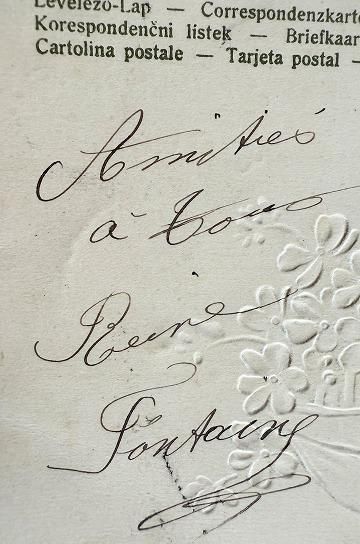 Levelező-Lap — Correspondenzkarte
Korespondenční lístek — Briefkaar
Cartolina postale — Tarjeta postal —
Amitiés
à tous
Reine
Fontaine